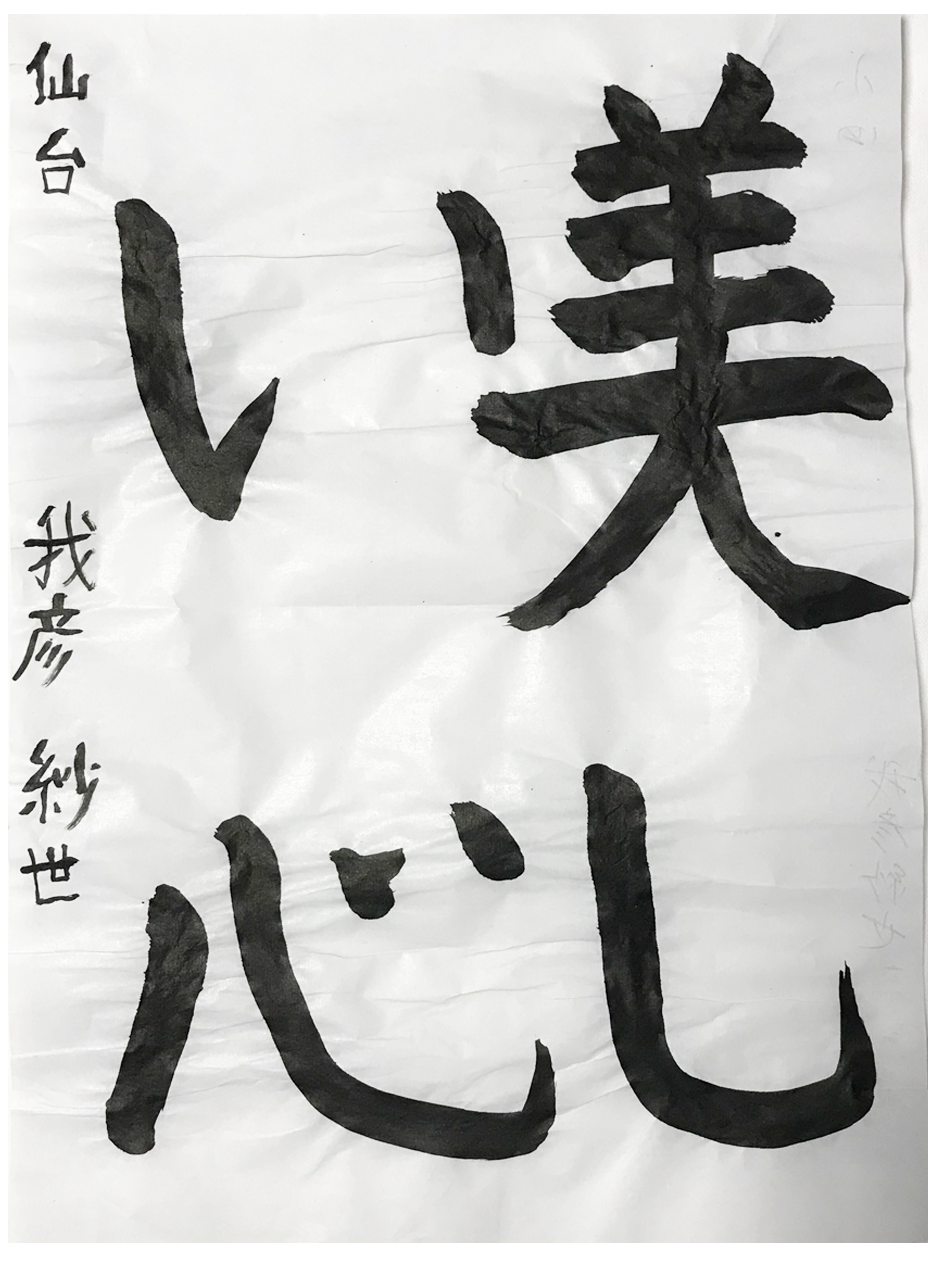 美し
い心
仙台 我彦 紗世